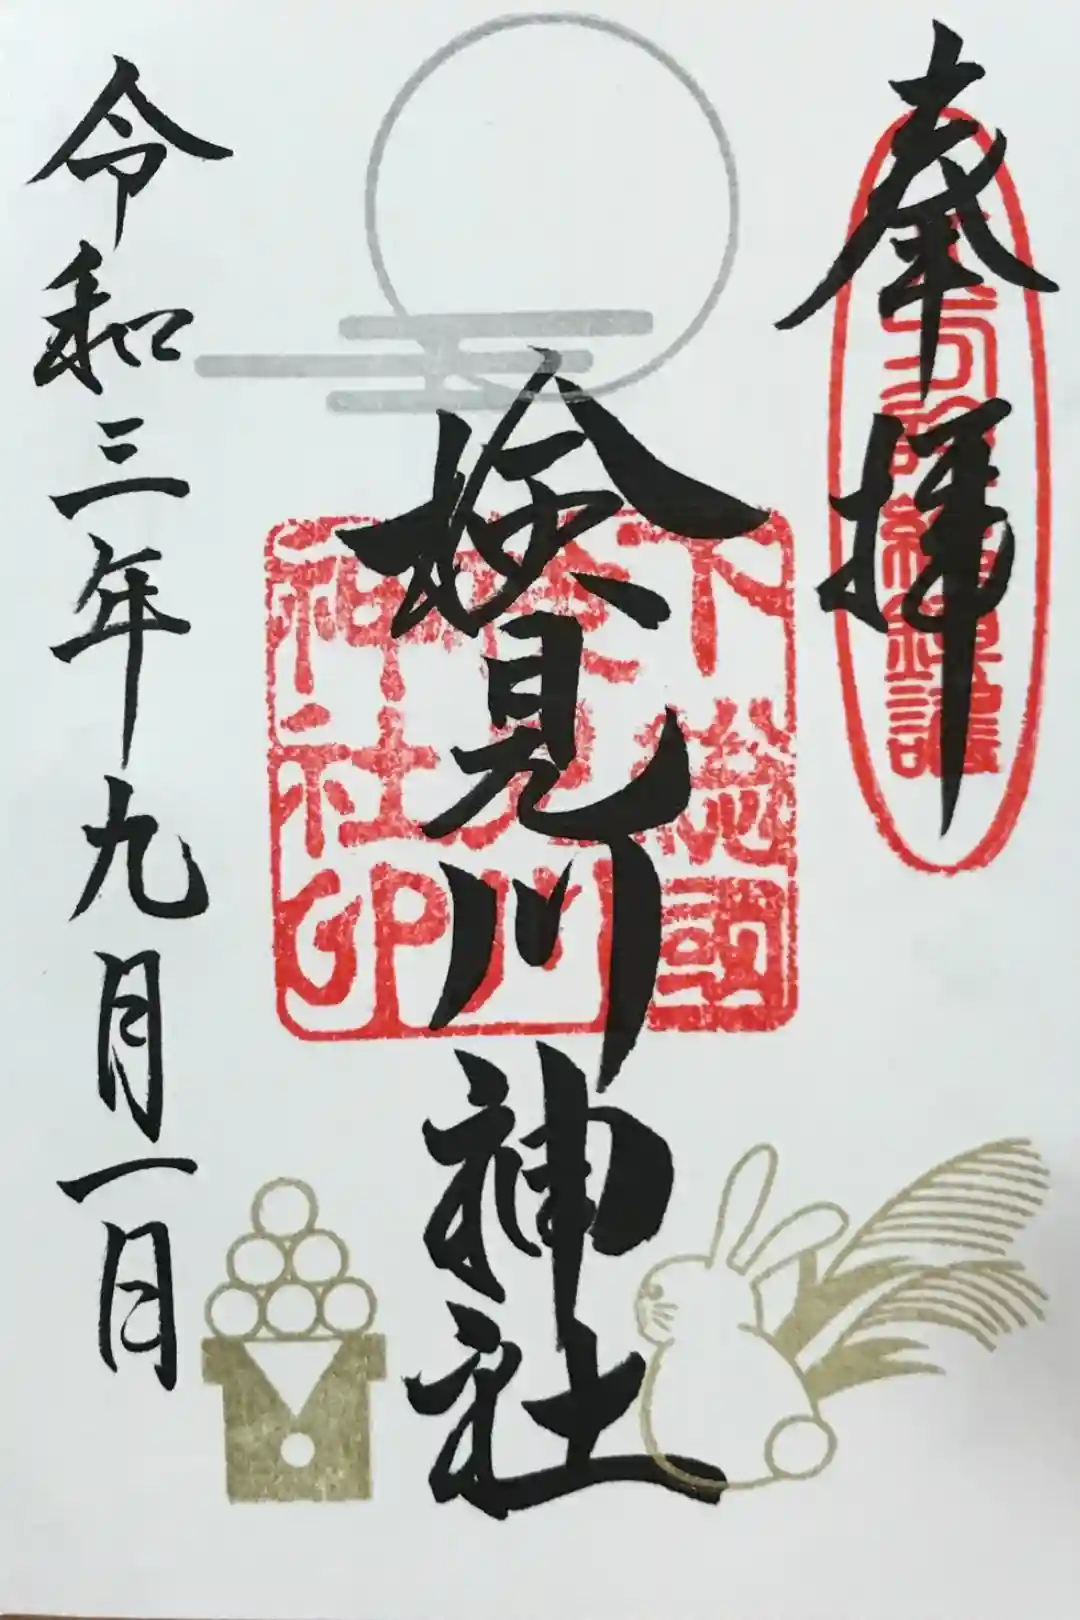 奉拝
検見川神社
下總國
検見川
神社印
令和三年九月一日